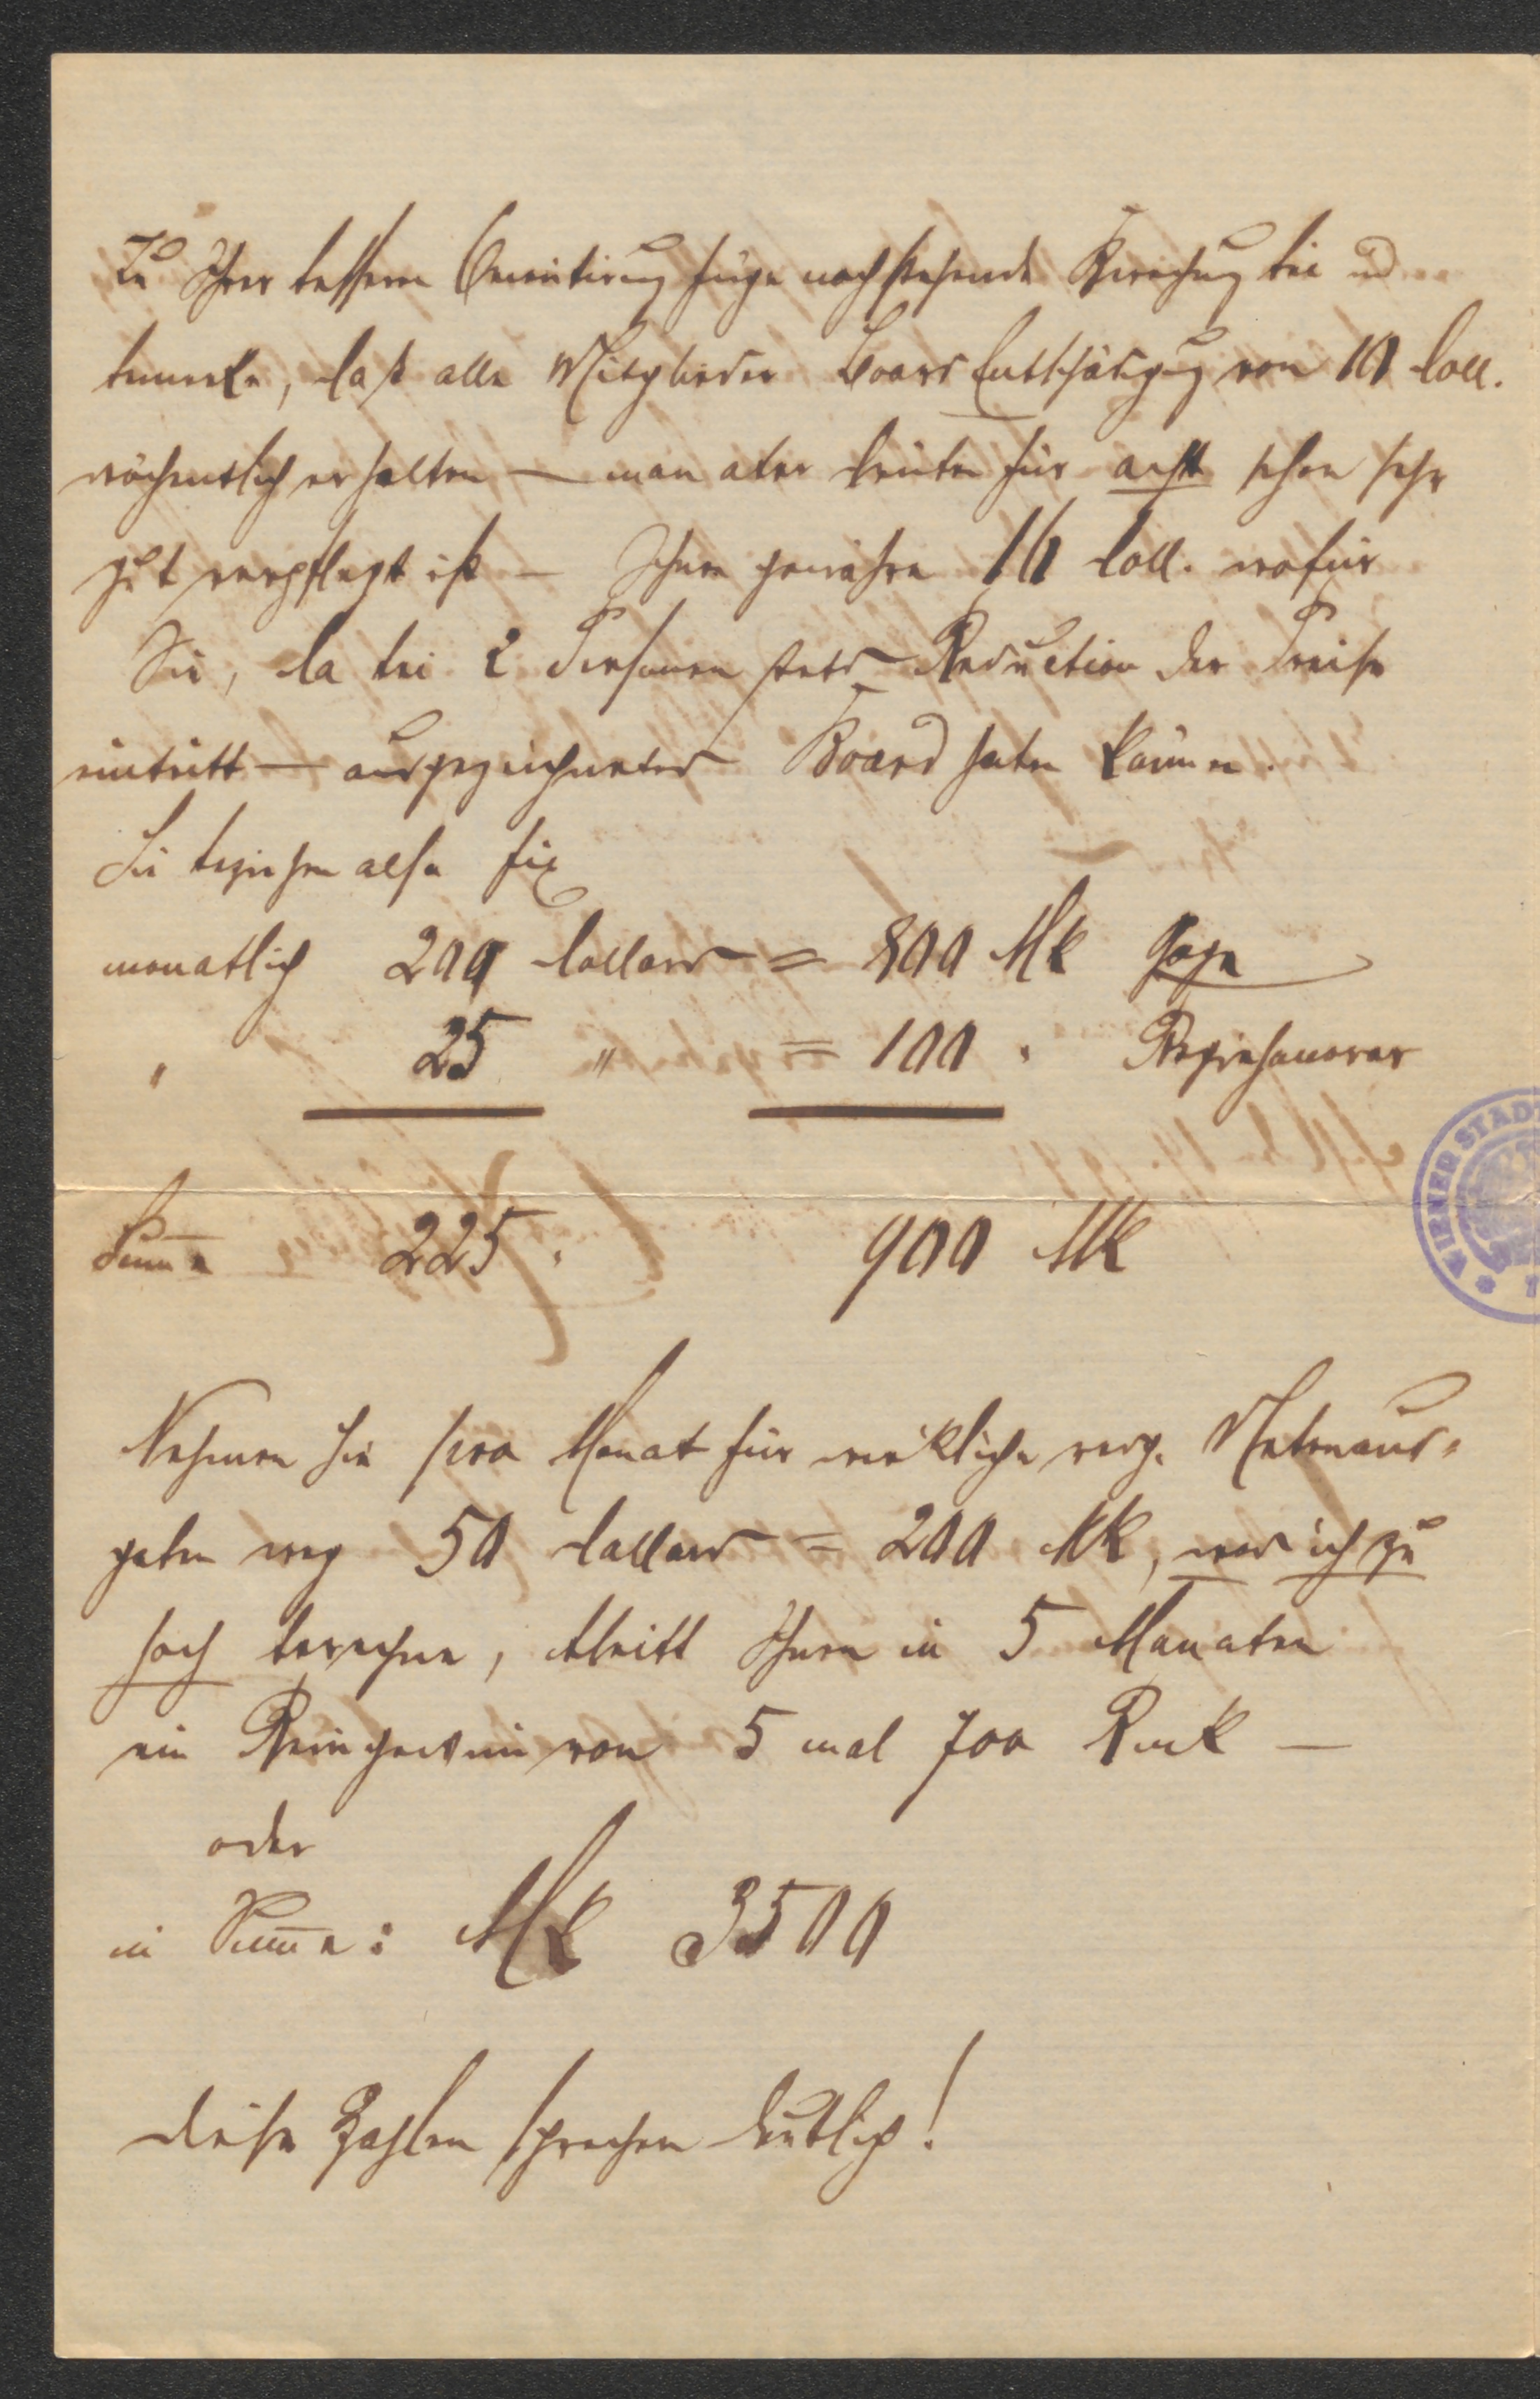 Zu Ihrer bessern Orientirung füge nachstehende Berechnung bei und
bemerke, daß alle Mitglieder Board Entschädigung von 10 Doll.
wöchentlich erhalten — man aber drüben für acht schon sehr
gut verpflegt ist — Ihnen gewähre 16 Doll. wofür
Sie, da bei 2 Personen stets Reduction der Preise
eintritt — ausgezeichneten Board haben können.
Sie beziehen also fix
monatlich 200 Dollars = 800 Mk Gage
" 25 " = 100 " Regiehonorar
Summe 225 " 900 Mk
Nehmen Sie pro Monat für wirkliche Nebenaus-
gaben weg 50 Dollars = 200 Mk, was ich zu
hoch berechne, bleibt Ihnen in 5 Monaten
ein Reingewinn von 5 mal 700 Rmk —
oder
in Summe: Mk 3500
Diese Zahlen sprechen deutlich!
WIENER STAD